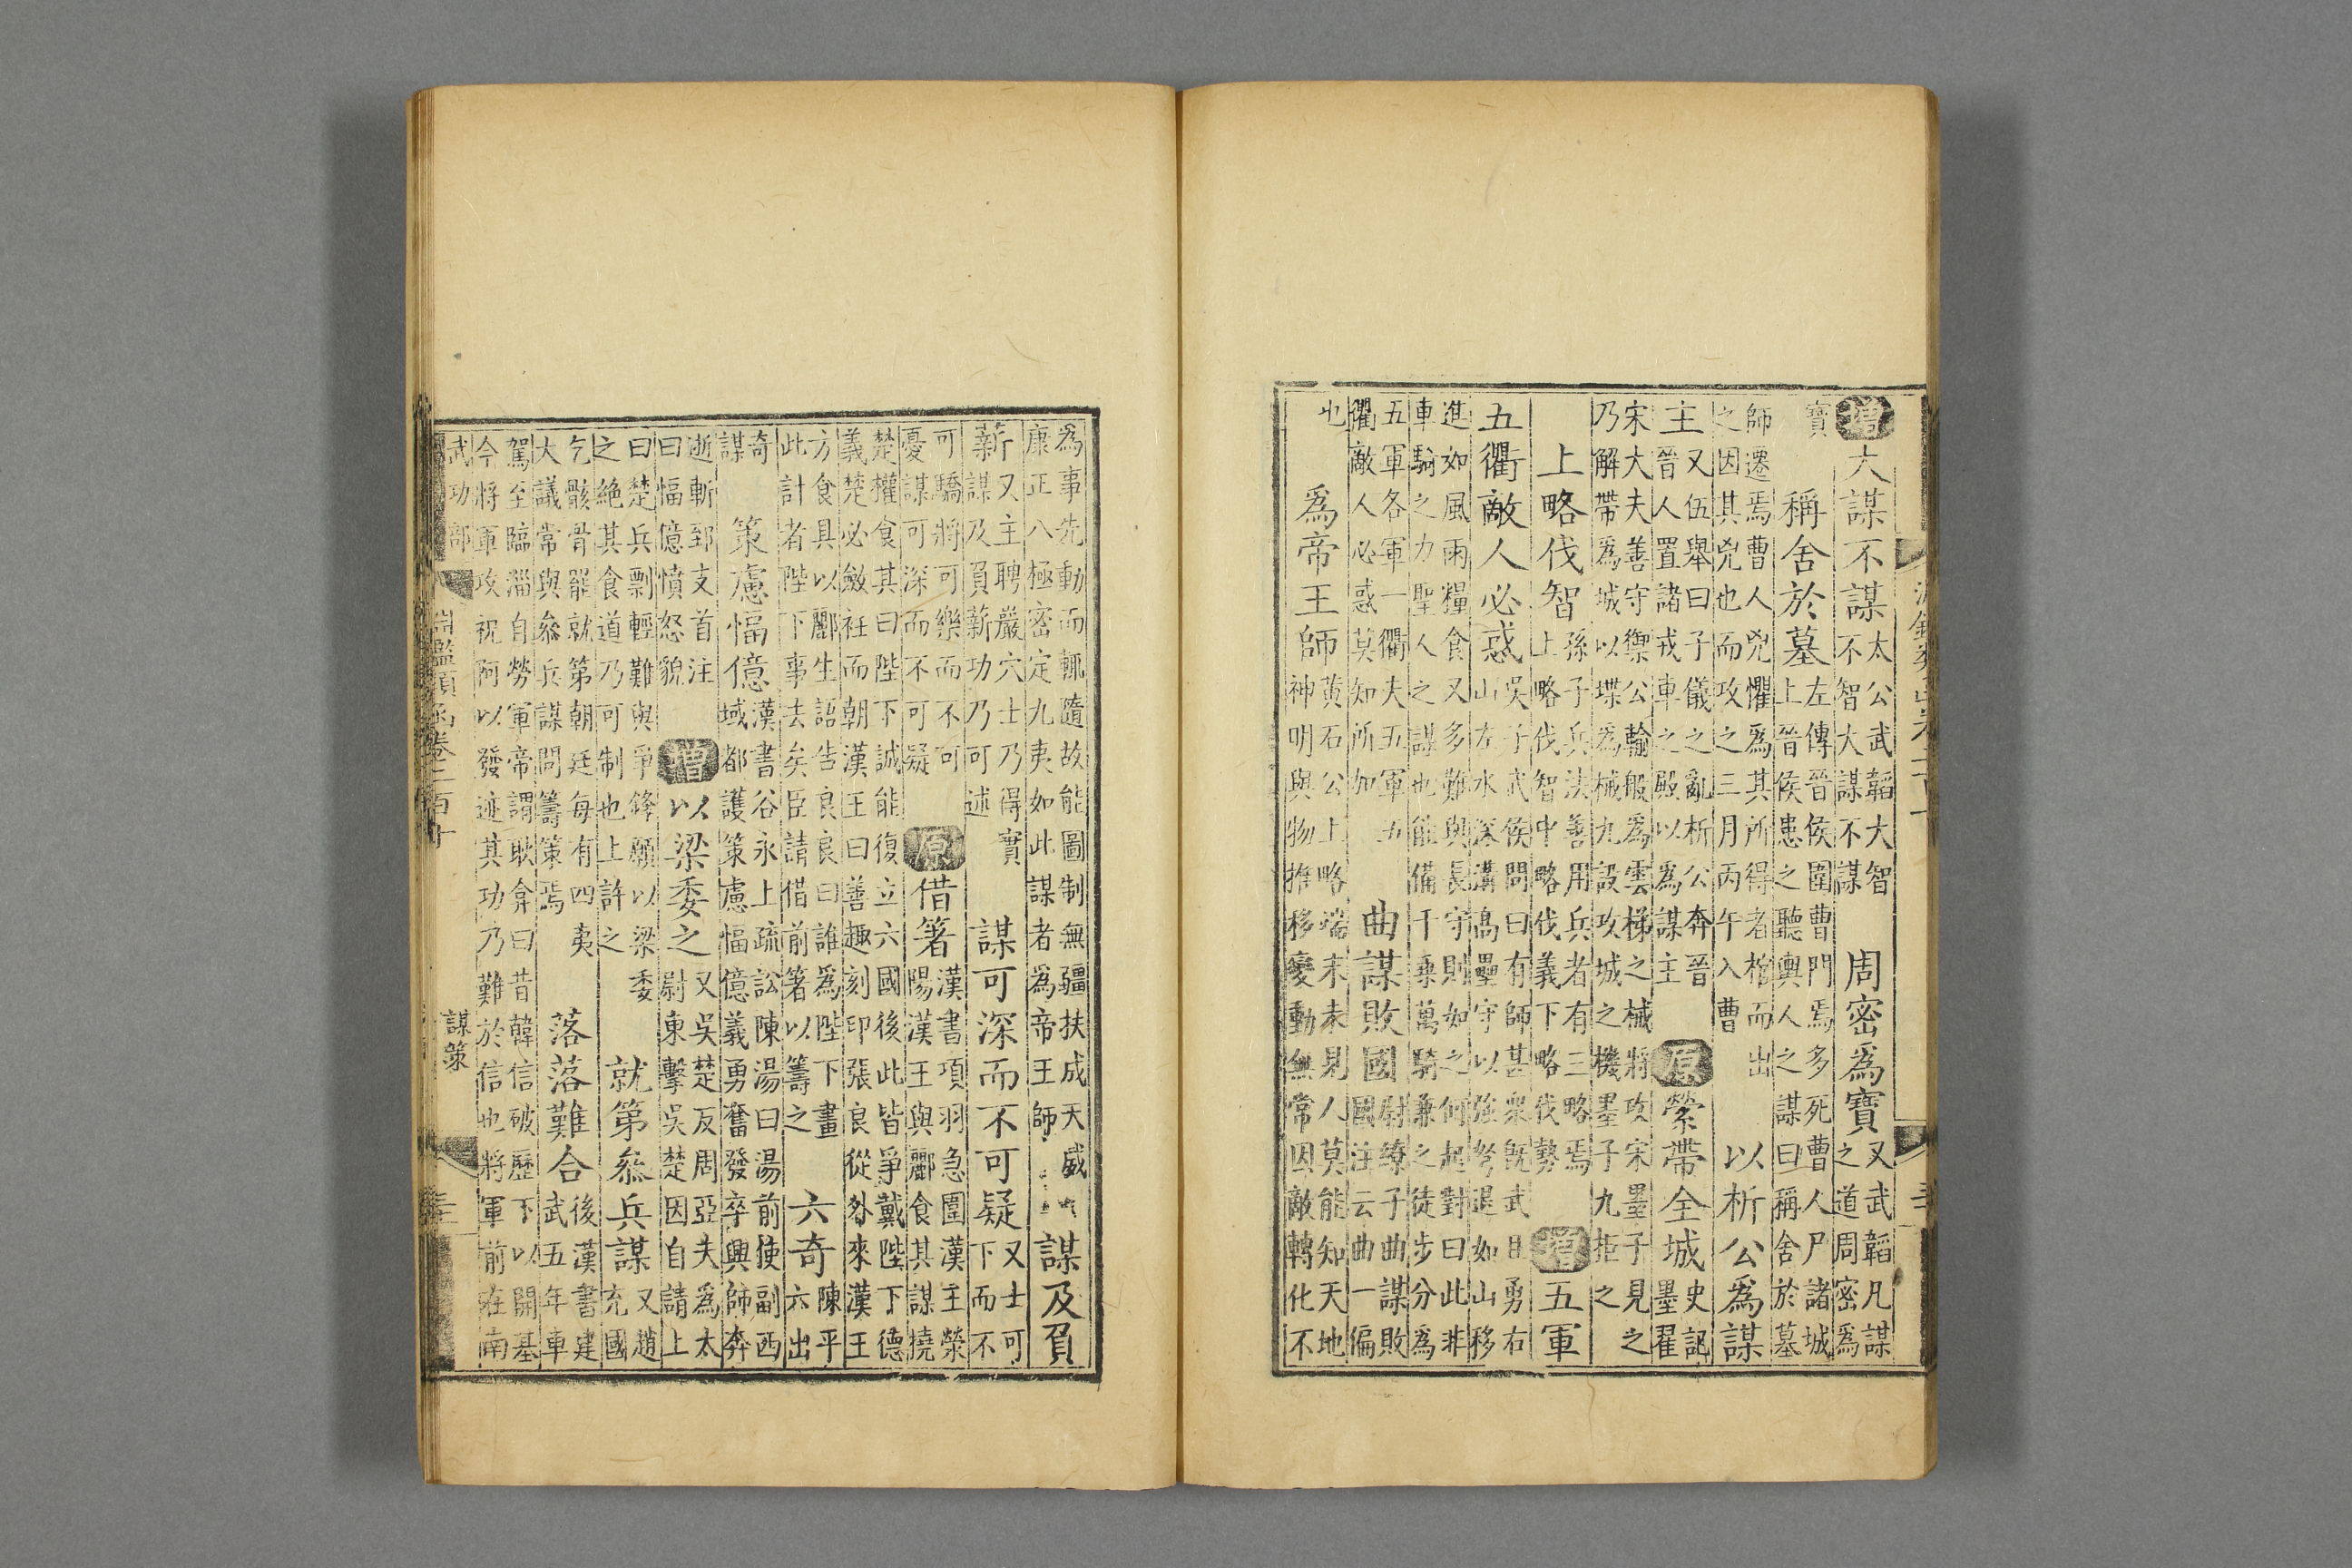 增大謀不謀太公武韜大智不智大謀不謀周密為寶又武韜凡謀之道周密為
寶稱舍於墓左傳晉侯圍曹門焉多死曹人尸諸城上晉侯患之聽輿人之謀曰稱舍於墓
師遷焉曹人兇懼為其所得者棺而出之因其兇也而攻之三月丙午入曹以析公爲謀
主又伍舉曰子儀之亂析公奔晉晉人置諸戎車之殿以為謀主原縈帶全城史記墨翟
宋大夫善守禦公輸般為雲梯之械將攻宋墨子見之乃解帶為城以堞為械九設攻城之機墨子九拒之
上略伐智孫子兵法善用兵者有三略焉上略伐智中略伐義下略伐勢增五軍
五衢敵人必惑吳子武侯問曰有師甚衆既武且勇右山左水深溝高壘守以強弩退如山移
進如風雨糧食又多難與長守則如之何起對曰此非車騎之力聖人之謀也能備千乘萬騎兼之徒步分為
五軍各軍一衢夫五軍五衢敵人必惑莫知所加曲謀敗國尉繚子曲謀敗國注云曲一偏
也爲帝王師黃石公上略端末未見人莫能知天地神明與物推移變動無常因敵轉化不
為事先動而輒隨故能圖制無疆扶成天威康正八極密定九夷如此謀者為帝王師謀及負
薪又主聘巖穴士乃得實謀及負薪功乃可述謀可深而不可疑又士可下而不
可驕將可樂而不可憂謀可深而不可疑原借箸漢書項羽急圍漢王滎陽漢王與酈食其謀撓
楚權食其曰陛下誠能復立六國後此皆爭戴陛下德義楚必斂衽而朝漢王曰善趣刻印張良從外來漢王
方食具以酈生語告良良曰誰為陛下畫此計者陛下事去矣臣請借前箸以籌之六奇陳平六出
奇謀策慮愊億漢書谷永上疏訟陳湯曰湯前使副西域都護策慮愊億義勇奮發卒興師奔
逝斬郅支首注曰愊億憤怒貌增以梁委之又吳楚反周亞夫為太尉東擊吳楚因自請上
曰楚兵剽輕難與爭鋒願以梁委之絕其食道乃可制也上許之就第叅兵謀又趙充國
乞骸骨罷就第朝廷每有四夷大議常與叅兵謀問籌策焉落落難合後漢書建武五年車
駕至臨淄自勞軍帝謂耿弇曰昔韓信破歷下以開基今將軍攻祝阿以發迹其功乃難於信也將軍前在南
武功部 淵鑑類函卷二百十 謀策